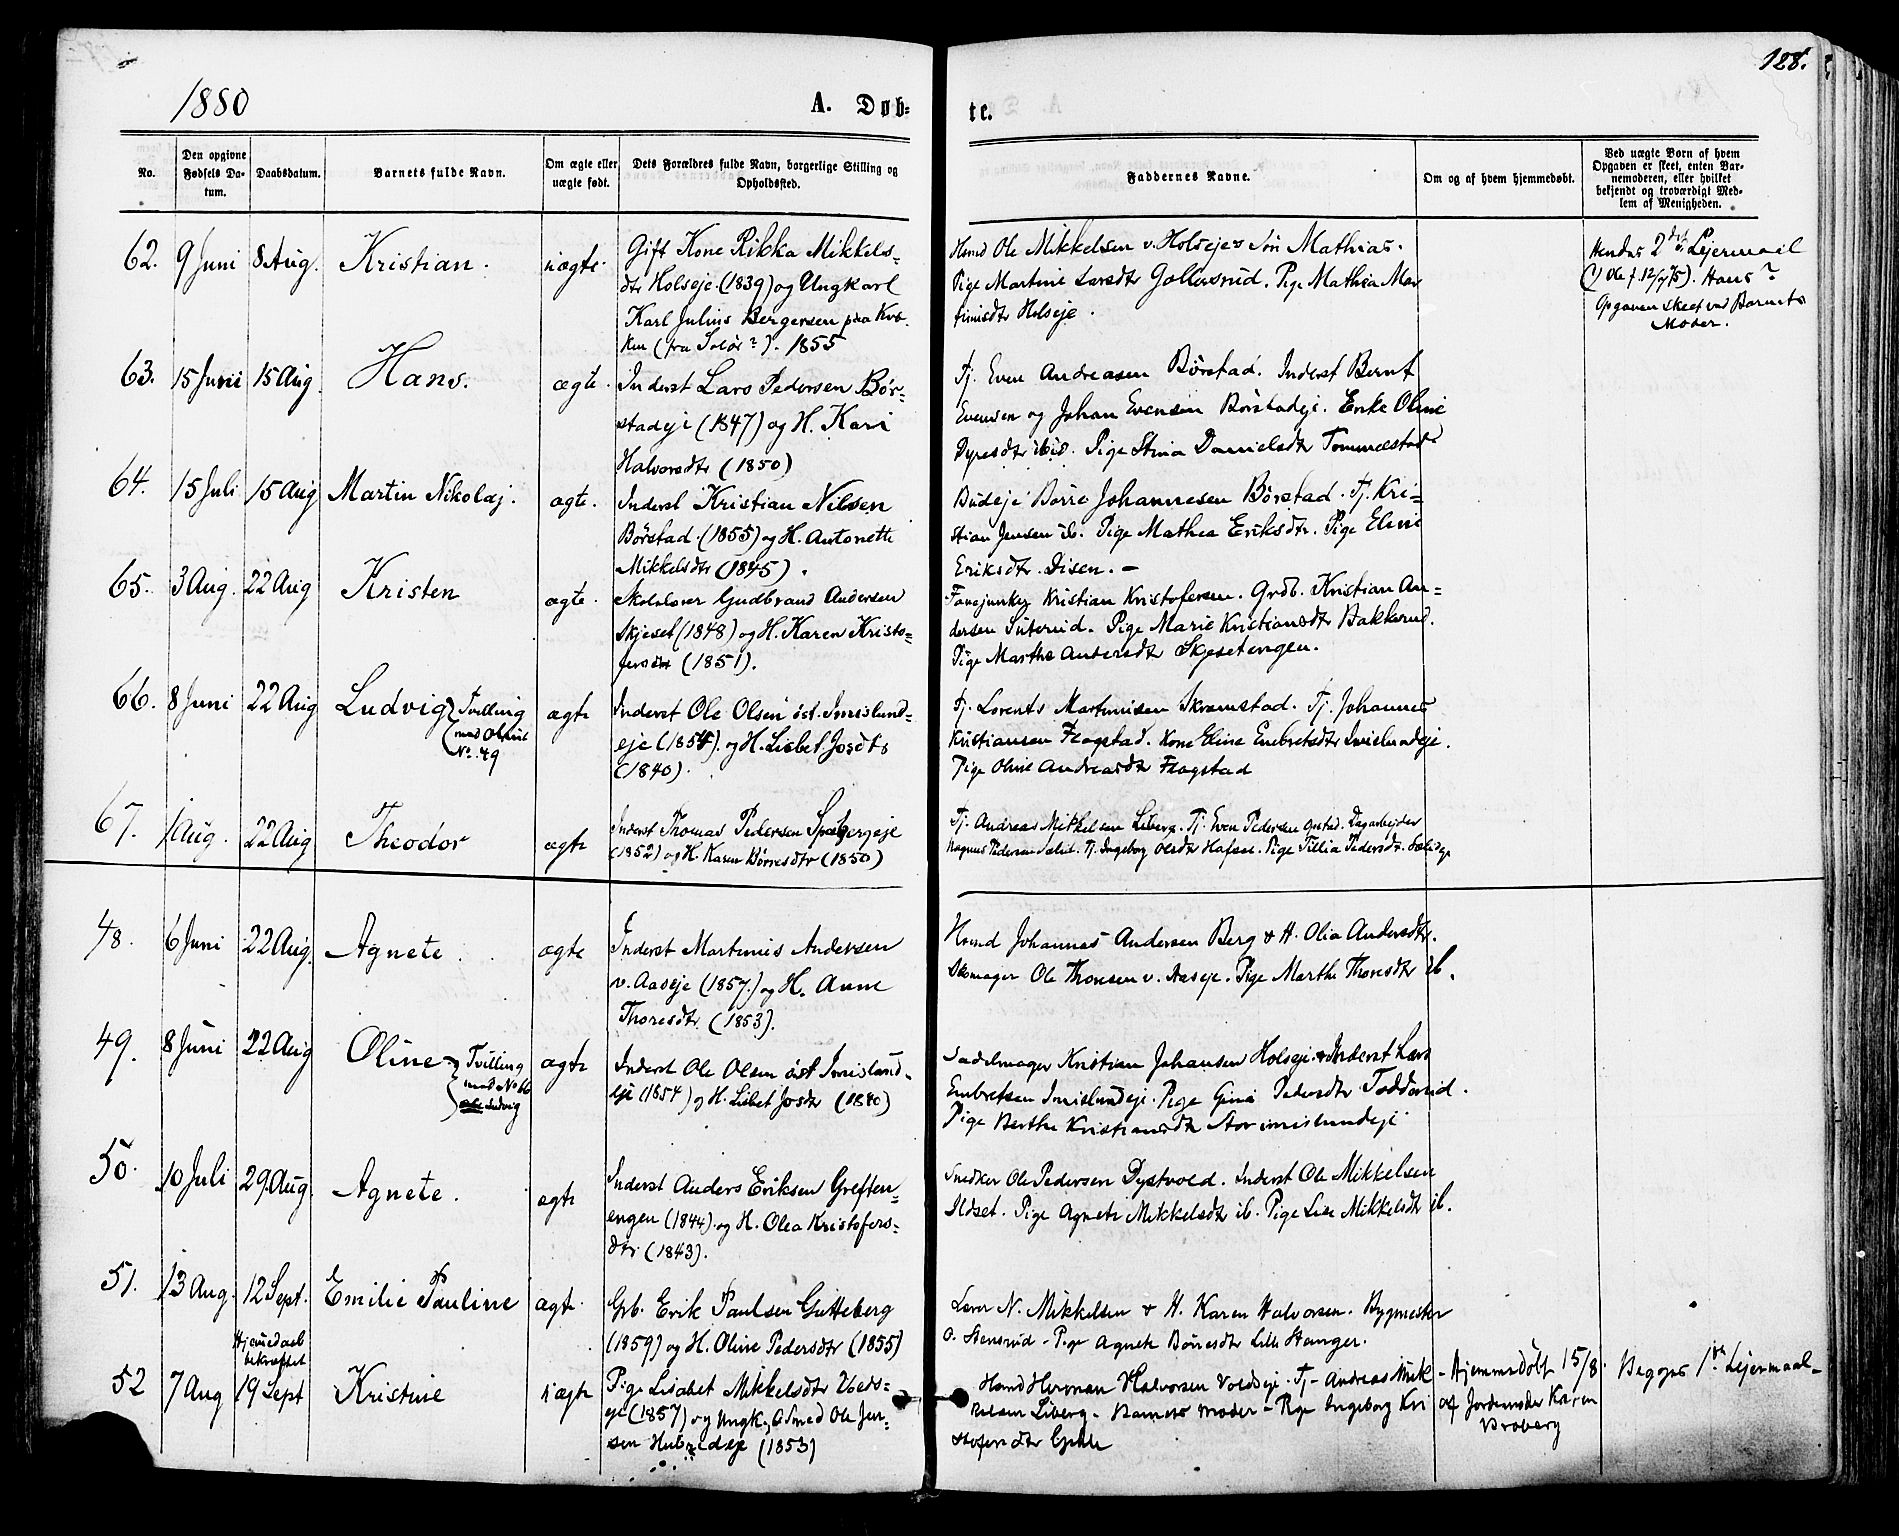 128.
1880
A. Døb=
te.
No.
Den opgivne Fødsels Da-tum.
Daabsdatum.
Barnets fulde Navn.
Om ægte eller uægte født.
Dets Forældres fulde Navn, borgerlige Stilling og Opholdssted.
Faddernes Navne.
Om og af hvem hjemmedøbt.
Ved uægte Børn af hvem Opgaven er skeet, enten Bar-nemoderen, eller hvilket bekjendt og troværdigt Med-lem af Menigheden.
62. 9 Juni 8 Aug. Kristian. uægte.
Gift Kone Rikka Mikkels=
dtr Holseje (1839) og Ungkarl
Karl Julius Bergersen paa Kvæ-
ken (fra Solør?). 1855
Hmd Ole Mikkelsen v. Holseje Søn Mathias.
Pige Martine Larsdtr Gollersrud. Pige Mathea Mar
tinisdtr Holseje.
Hendes 2det Lejermaal
Opgaven skeet ved Barnets
Moder.
63. 15 Juni 15 Aug Hans. ægte.
Inderst Lars Pedersen Bør-
stadeje (1847) og H. Kari
Halvorsdtr (1850)
Tj. Even Andreasen Børstad. Inderst Bernt
Evensen og Johan Evensen Børstadeje. Enke Oline
Dyresdtr ibid. Pige Stina Danielsdtr Tommestad
64. 15 Juli 15 Aug Martin Nikolaj. ægte.
Inderst Kristian Nilsen
Børstad (1855) og H. Antonette
Mikkelsdtr (1845).
Budeje Børre Johannesen Børstad. Tj. Kri=
stian Jensen ib. Pige Mathea Eriksdtr. Pige Eline
Eriksdtr. Disen. -
65. 3 Aug. 22 Aug Kristen ægte.
Skolelærer Gudbrand Andersen
Skjeset (1848) og H. Karen Kristo=
fersdtr (1851).
Fanejunker Kristian Kristofersen. Grdb. Kristian An=
dersen Suterud. Pige Marie Kristiansdtr Bakkerud.
Pige Marthe Andersdtr Skjesetengen.
66. 8 Juni 22 Aug Ludvig Tvilling med Oline No. 49 ægte
Inderst Ole Olsen øst. Imislund=
eje (1854) og H. Lisbet Josdtr
(1840).
Tj. Lorents Martinisen Skramstad. Tj. Johannes
Kristiansen Flagstad. Kone Eline Embretsdtr Imislundeje.
Pige Oline Andreasdtr Flagstad
67. 1 Aug. 22 Aug Theodor ægte
Inderst Thomas Pedersen Spabergeje
(1852) og H. Karen Børresdtr (1850)
Tj. Andreas Mikkelsen Liberg. Tj. Even Pedersen Opstad. Dagarbejder
Magnus Pedersen Sælid. Tj. Ingeborg Olsdtr Hafsæl. Pige Tillia Pedersdtr. Sælideje
48. 6 Juni 22 Aug. Agnete. ægte
Inderst Martinus Andersen
v. Aaseje (1857.) og H. Anne
Thoresdtr (1853).
Hmd Johannes Andersen Berg & H. Olia Andersdtr.
Skomager Ole Thoresen v. Aaseje. Pige Marthe Thoresdtr ib.
49. 8 Juni 22 Aug Oline Tvilling med No 66 Ludvig ægte
Inderst Ole Olsen øst Imislund-
eje (1854) og H. Lisbet Josdtr (1840)
Sadelmager Kristian Johansen Holseje. Inderst Lars
Embretsen Imislundeje. Pige Gina Pedersdtr Todderud.
Pige Berthe Kristiansdtr Storimislundeje
50. 10 Juli 29 Aug. Agnete. ægte
Inderst Anders Eriksen Greften=
engen (1844) og H. Olea Kristofers=
dtr (1843).
Snedker Ole Pedersen Dystvold. Inderst Ole Mikkelsen
Ildset. Pige Agnete Mikkelsdtr ib. Pige Lise Mikkelsdtr ib.
51. 13 Aug. 12 Sept. Emilie Pauline ægte.
Grb. Erik Paulsen Gutteberg
(1859) og H. Oline Pedersdtr (1855)
Lærer N. Mikkelsen & H. Karen Halvorsen. Bygmester
O. Stensrud - Pige Agnete Børresdtr Lille Stanger.
Hjemedaab bekræftet
52 7 Aug 19 Sept Kristine uægte
Pige Lisabet Mikkelsdtr Heds-
eje (1857) og Ungk. Smed Ole Jen-
sen (1853)
Hmd Herman Halvorsen Voldseje. Tj- Andreas Mik
kelsen Liberg. Barnets Moder - Pige Ingeborg Kri
stofersdtr Gjetle
- Hjemmedøbt 15/8.
af Jordemoder Karen
Broberg
Begges 1ste Lejermaal.